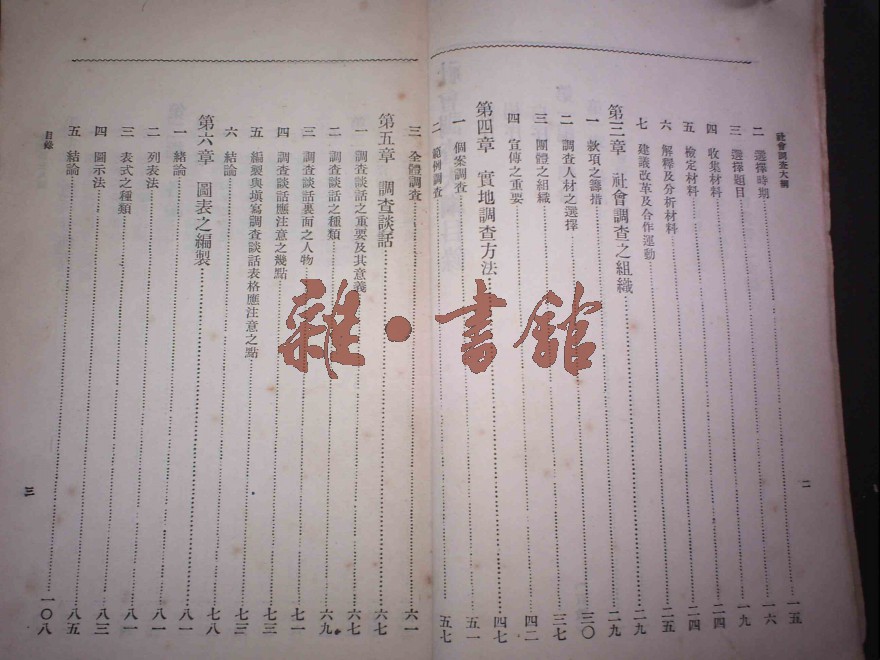 社會調查大綱
二 選擇時期……一五
三 選擇題目……一六
四 收集材料……一九
五 檢定材料……二四
六 解釋及分析材料……二四
七 建議改革及合作運動……二五
第三章 社會調查之組織……二九
一 款項之籌措……二九
二 調查人材之選擇……三〇
三 團體之組織……三七
四 宣傳之重要……四二
第四章 實地調查方法……四七
一 個案調查……五一
二 範例調查……五七
二
三 全體調查……六一
第五章 調查談話……六七
一 調查談話之重要及其意義……六七
二 調查談話之種類……六九
三 調查談話裏面之人物……七一
四 調查談話應注意之幾點……七三
五 編製與塡寫調查談話表格應注意之點……七三
六 結論……七八
第六章 圖表之編製……八一
一 緒論……八一
二 列表法……八一
三 表式之種類……八三
四 圖示法……八五
五 結論……一〇八
目錄
三
雜•書館